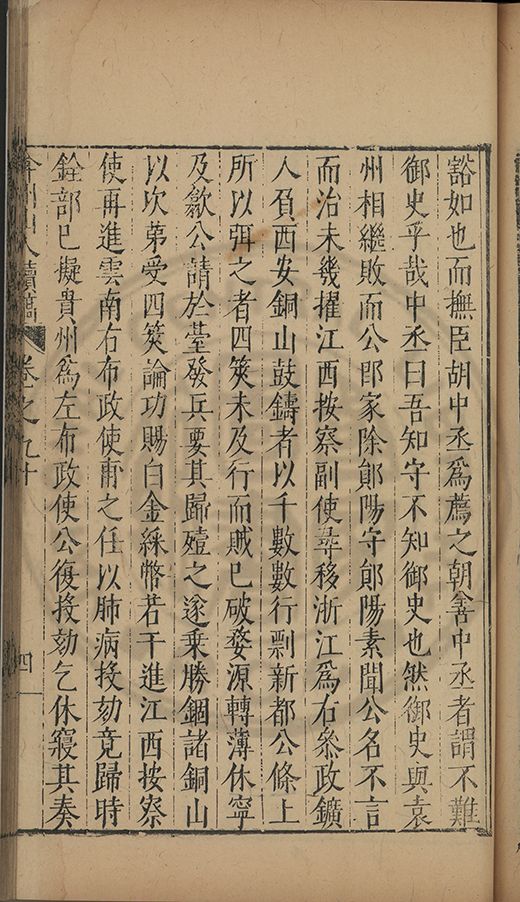 豁如也而撫臣胡中丞爲薦之朝詧中丞者謂不難
御史乎哉中丞曰吾知守不知御史也然御史與袁
州相繼敗而公卽家除鄖陽守鄖陽素聞公名不言
而治未幾擢江西按察副使尋移浙江爲右叅政鑛
人負西安銅山鼓鑄者以千數數行剽新都公條上
所以弭之者四筴未及行而賊已破婺源轉薄休寧
及歙公請於臺發兵要其歸殪之遂乗勝錮諸銅山
以次第受四筴論功賜白金綵幣若干進江西按察
使再進雲南右布政使甫之任以肺病投劾竟歸時
銓部已擬貴州爲左布政使公復投劾乞休寢其奏
弇州山人續稿 卷之九十 四